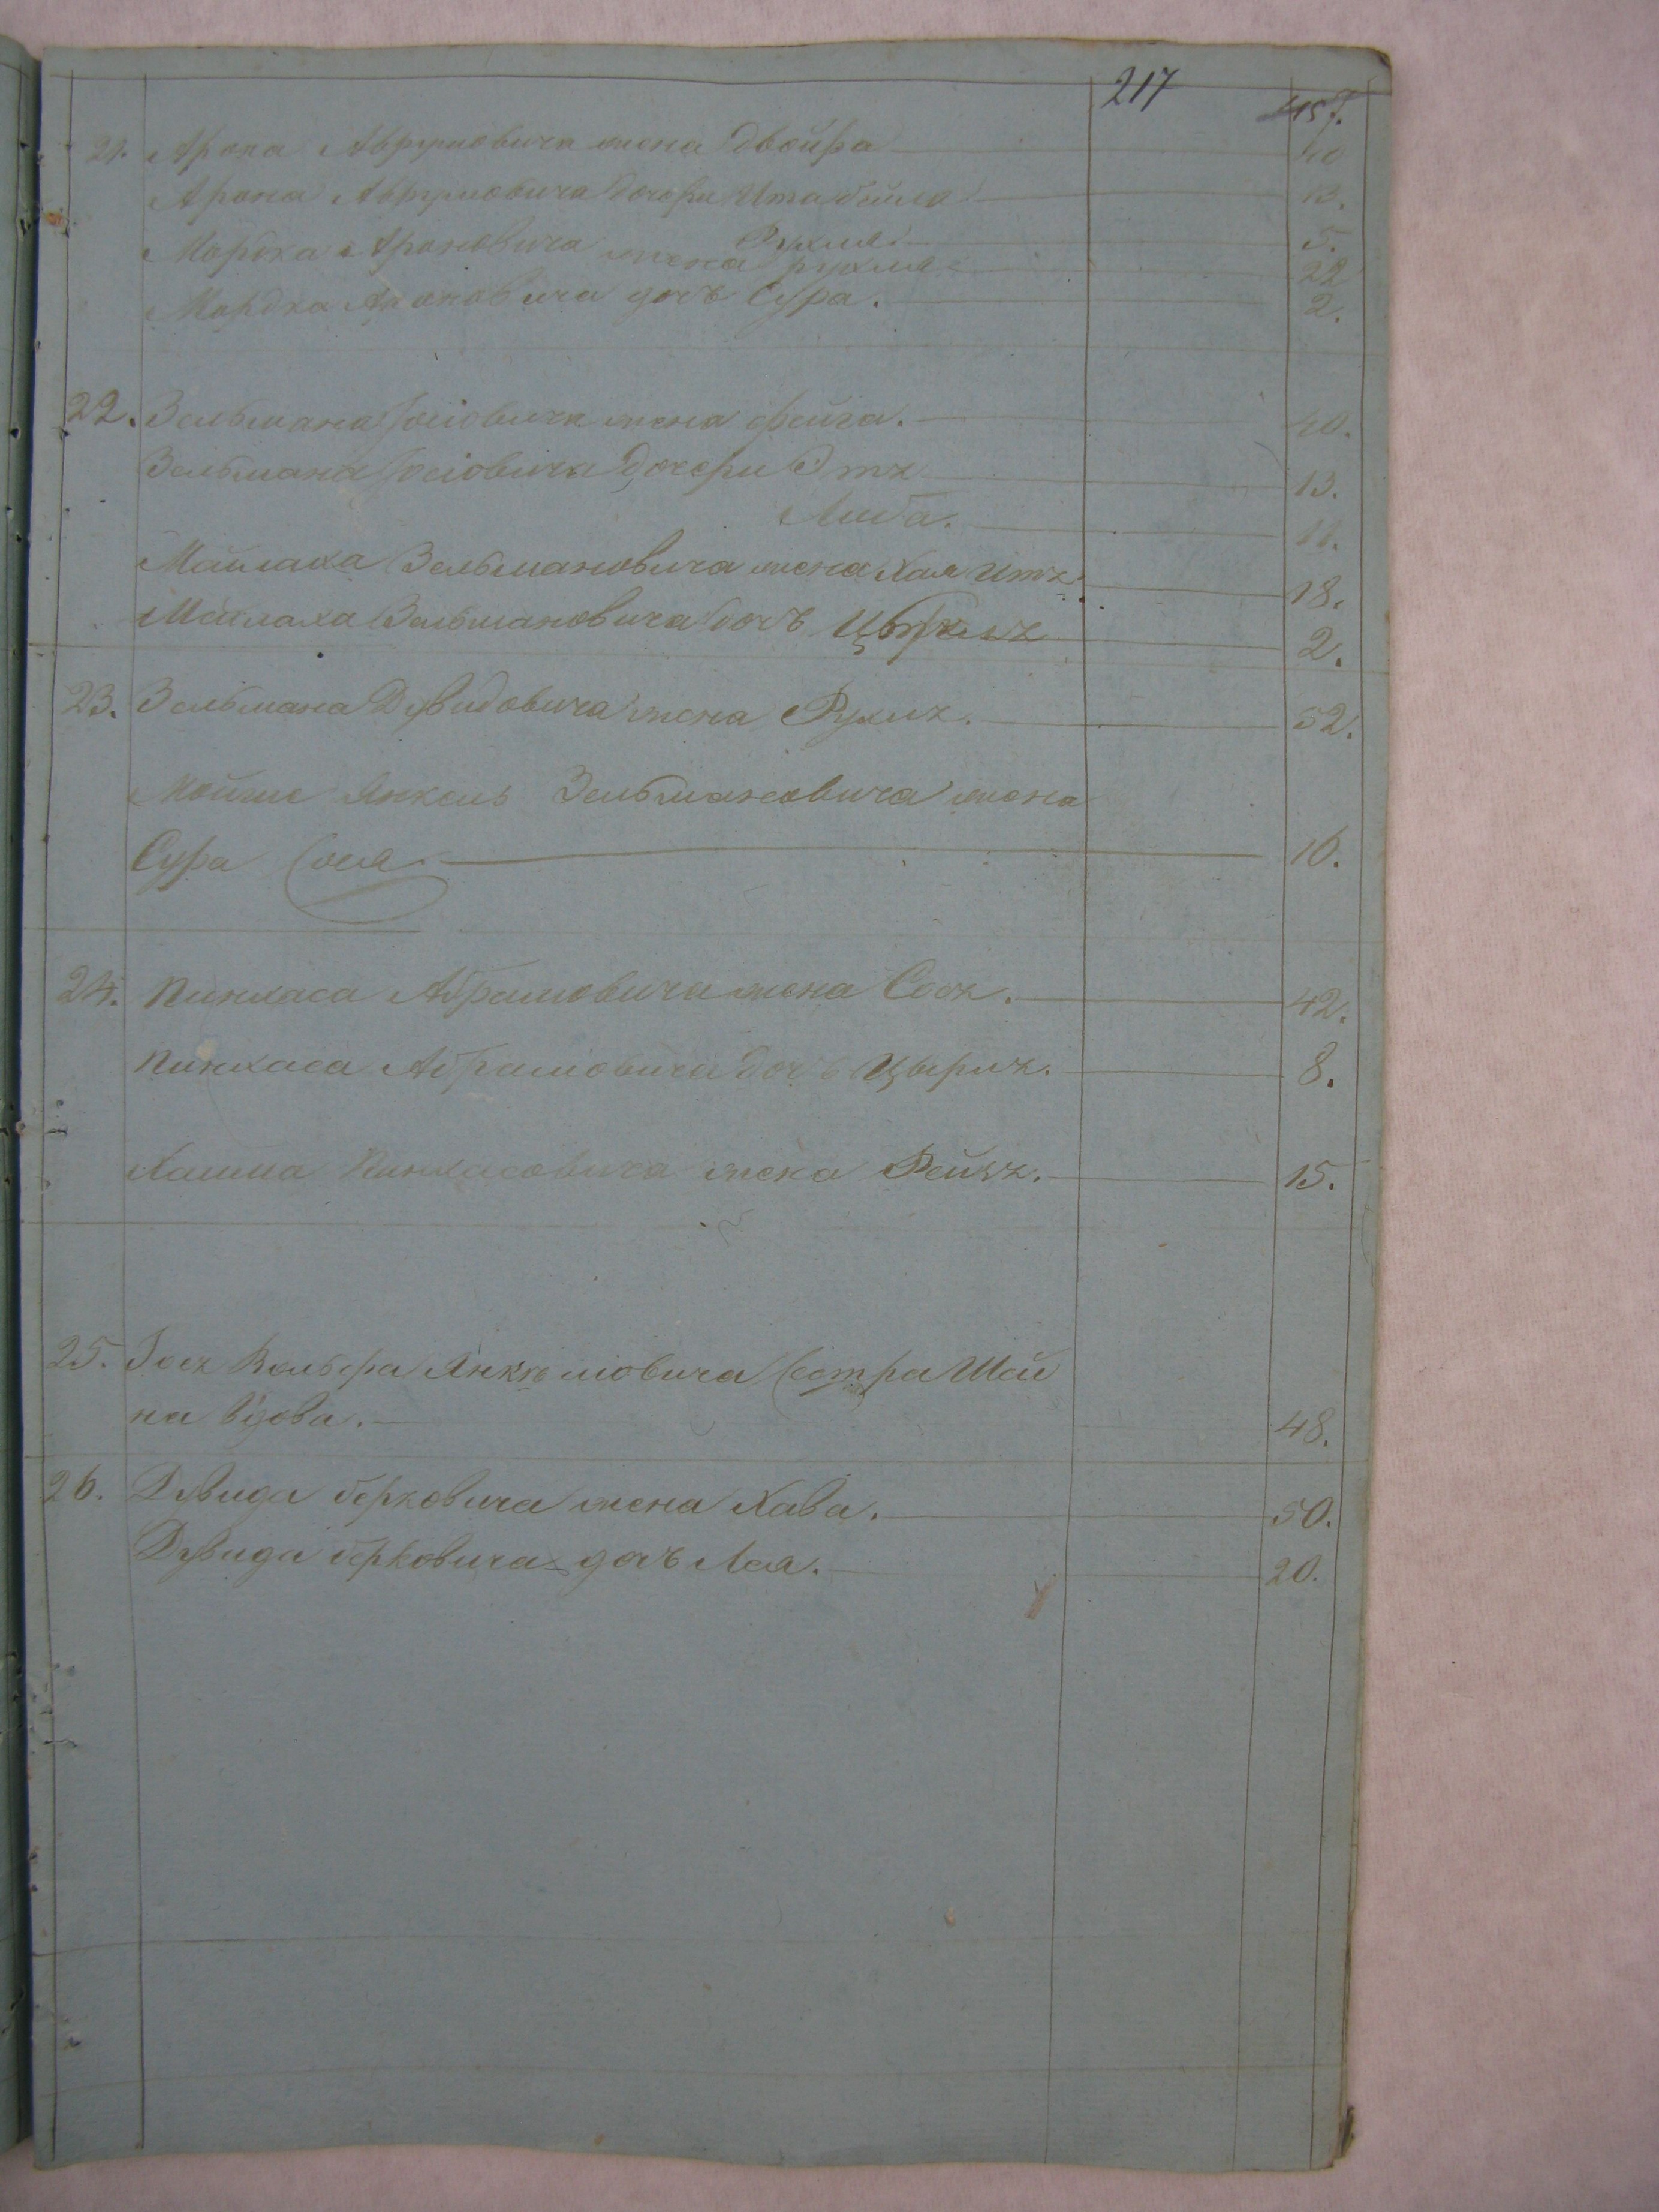 217
457.
21. Арона Аврумовича жена Двойра 40
Арона Аврумовича дочери Ита бейла 13.
Рухля 5.
Мордка Ароновича жена рухля 22
Мордка Ароновича дочь Сура. 2.
22. Зельмана Іосіовича жена Фейга. 40.
Зельмана Іосіовича дочери Этъ 13.
Либа. 11.
Майлаха Зельмановича жена Хая Итъ 18.
Мейлаха Зельмановича дочь 2.
23. Зельмана Дувидовича жена Рухлъ. 52.
Мойше Янкель Зельмановича жена
Сура Сося 16.
24. Пинхаса Абрамовича жена Сосъ. 42.
Пинхаса Абрамовича дочь Цырлъ. 8.
Хаима Пинхасовича жена Рейзъ. 15.
25. Госъ Вольфа Янкеліовича Сестра Шей
на вдова. 48.
26. Дувида берковича жена Хава. 50.
Дувида берковича дочь Лея. 20.